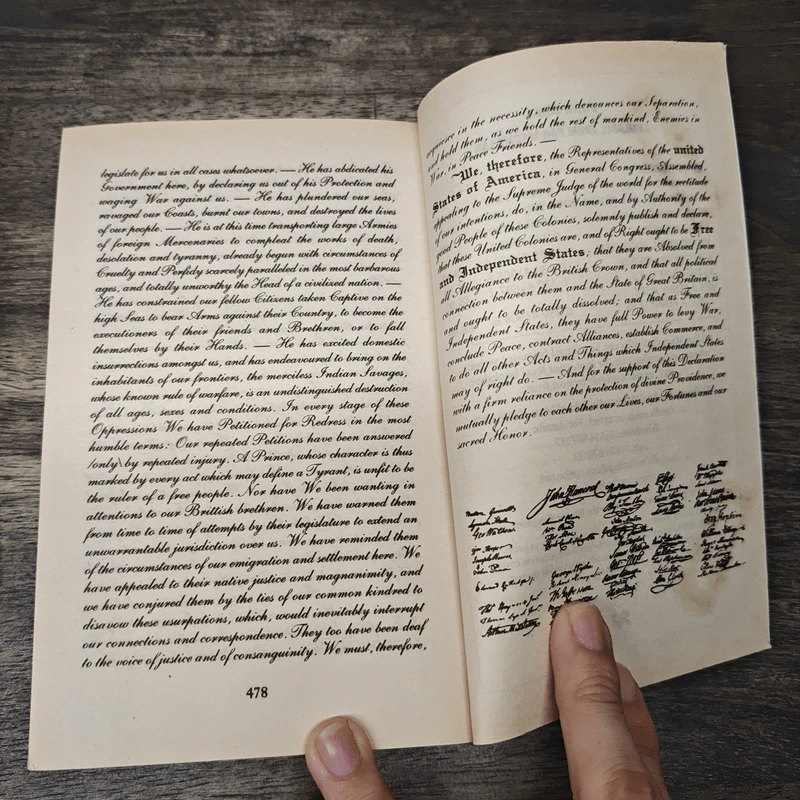 legislate for us in all cases whatsoever. — He has abdicated his
Government here, by declaring us out of his Protection and
waging War against us. — He has plundered our seas,
ravaged our Coasts, burnt our towns, and destroyed the lives
of our people. — He is at this time transporting large Armies
of foreign Mercenaries to compleat the works of death,
desolation and tyranny, already begun with circumstances of
Cruelty and Perfidy scarcely paralleled in the most barbarous
ages, and totally unworthy the Head of a civilized nation. —
He has constrained our fellow Citizens taken Captive on the
high Seas to bear Arms against their Country, to become the
executioners of their friends and Brethren, or to fall
themselves by their Hands. — He has excited domestic
insurrections amongst us, and has endeavoured to bring on the
inhabitants of our frontiers, the merciless Indian Savages,
whose known rule of warfare, is an undistinguished destruction
of all ages, sexes and conditions. In every stage of these
Oppressions We have Petitioned for Redress in the most
humble terms: Our repeated Petitions have been answered
/only\ by repeated injury. A Prince, whose character is thus
marked by every act which may define a Tyrant, is unfit to be
the ruler of a free people. Nor have We been wanting in
attentions to our Brittish brethren. We have warned them
from time to time of attempts by their legislature to extend an
unwarrantable jurisdiction over us. We have reminded them
of the circumstances of our emigration and settlement here. We
have appealed to their native justice and magnanimity, and
we have conjured them by the ties of our common kindred to
disavow these usurpations, which, would inevitably interrupt
our connections and correspondence. They too have been deaf
to the voice of justice and of consanguinity. We must, therefore,
478
in the necessity, which denounces our Separation,
and hold them, as we hold the rest of mankind, Enemies in
War, in Peace Friends. —
We, therefore, the Representatives of the united
States of America, in General Congress, Assembled,
appealing to the Supreme Judge of the world for the rectitude
of our intentions, do, in the Name, and by Authority of the
good People of these Colonies, solemnly publish and declare,
that these United Colonies are, and of Right ought to be Free
and Independent States; that they are Absolved from
all Allegiance to the British Crown, and that all political
connection between them and the State of Great Britain, is
and ought to be totally dissolved; and that as Free and
Independent States, they have full Power to levy War,
conclude Peace, contract Alliances, establish Commerce, and
to do all other Acts and Things which Independent States
may of right do. — And for the support of this Declaration
with a firm reliance on the protection of divine Providence, we
mutually pledge to each other our Lives, our Fortunes and our
sacred Honor.
John Hancock
Button Gwinnett
Lyman Hall
Geo Walton